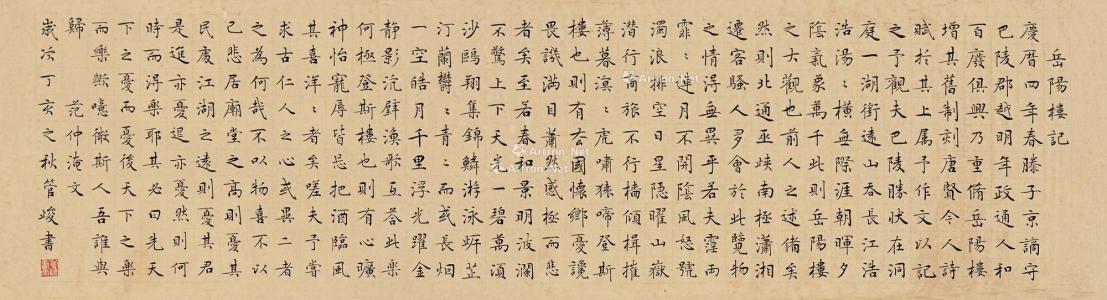 岳陽樓記
慶曆四年春滕子京謫守
巴陵郡越明年政通人和
百廢俱興乃重脩岳陽樓
增其舊制刻唐賢今人詩
賦於其上属予作文以記
之予觀夫巴陵勝狀在洞
庭一湖銜遠山吞長江浩
浩湯〻橫無際涯朝暉夕
陰氣象萬千此則岳陽樓
之大觀也前人之述備矣
然則北通巫峽南極瀟湘
遷客騷人多會於此覽物
之情得無異乎若夫霪雨
霏〻連月不開陰風怒號
濁浪排空日星隱曜山嶽
潛行商旅不行檣傾楫摧
薄暮冥〻虎嘯猿啼登斯
樓也則有去國懷鄉憂讒
畏譏滿目蕭然感極而悲
者矣至若春和景明波瀾
不驚上下天光一碧萬頃
沙鷗翔集錦鱗游泳岸芷
汀蘭鬱〻青〻而或長烟
一空皓月千里浮光躍金
靜影沉璧漁歌互答此樂
何極登斯樓也則有心曠
神怡寵辱皆忘把酒臨風
其喜洋〻者矣嗟夫予嘗
求古仁人之心或異二者
之為何哉不以物喜不以
己悲居廟堂之高則憂其
民處江湖之遠則憂其君
是進亦憂退亦憂然則何
時而得樂耶其必曰先天
下之憂而憂後天下之樂
而樂歟噫微斯人吾誰與
歸 范仲淹文
歲次丁亥之秋管峻書
Artron.Net
Artron.Net
Artron.Net